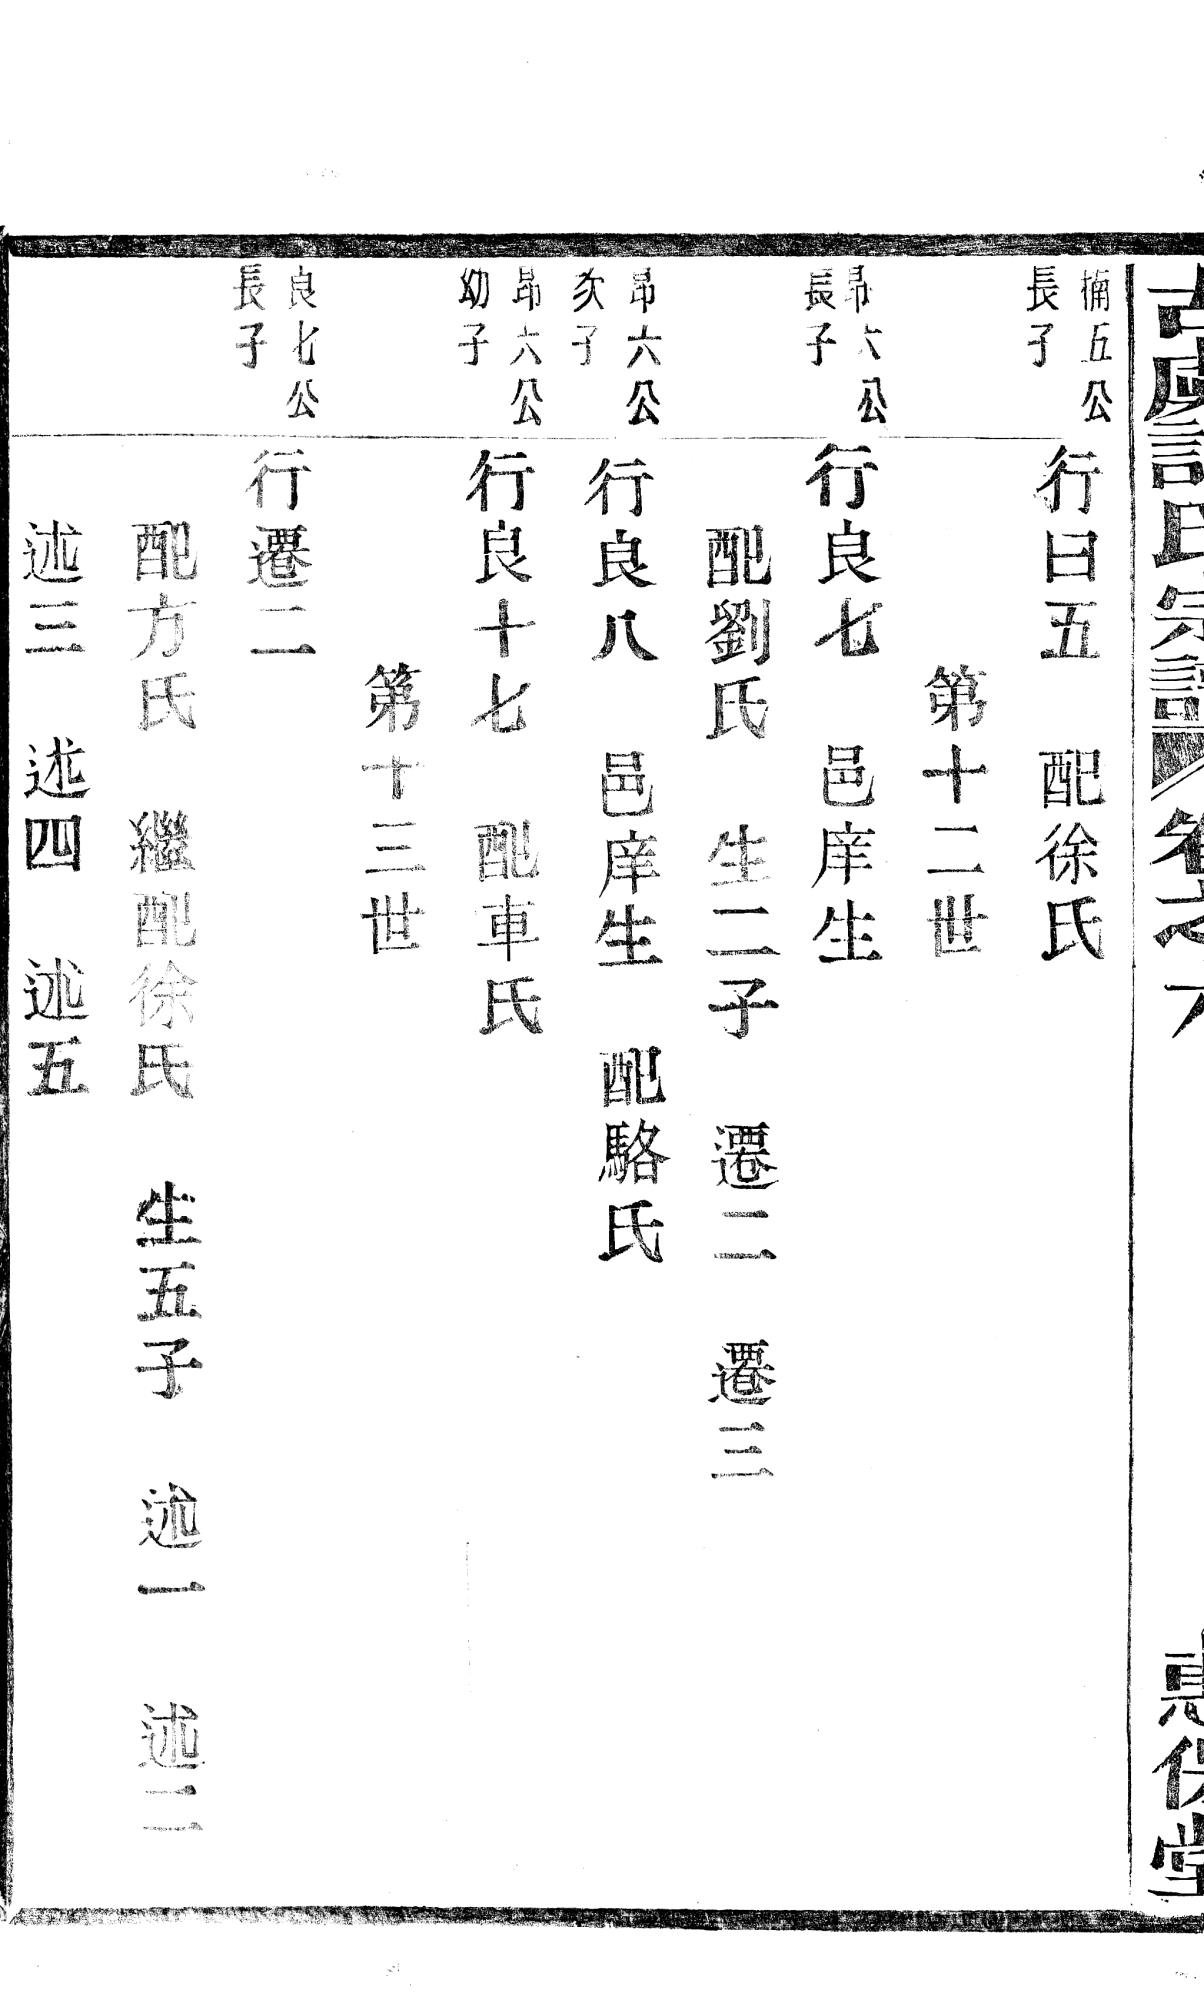 古虞許氏宗譜 卷之六 惠保堂
楠五公
長子
行曰五 配徐氏
第十二世
昂六公
長子
行良七 邑庠生
配劉氏 生二子 遷二 遷三
昂六公
次子
行良八 邑庠生 配駱氏
昂六公
幼子
行良十七 配車氏
第十三世
良七公
長子
行遷二
配方氏 繼配徐氏 生五子 述一 述二
述三 述四 述五